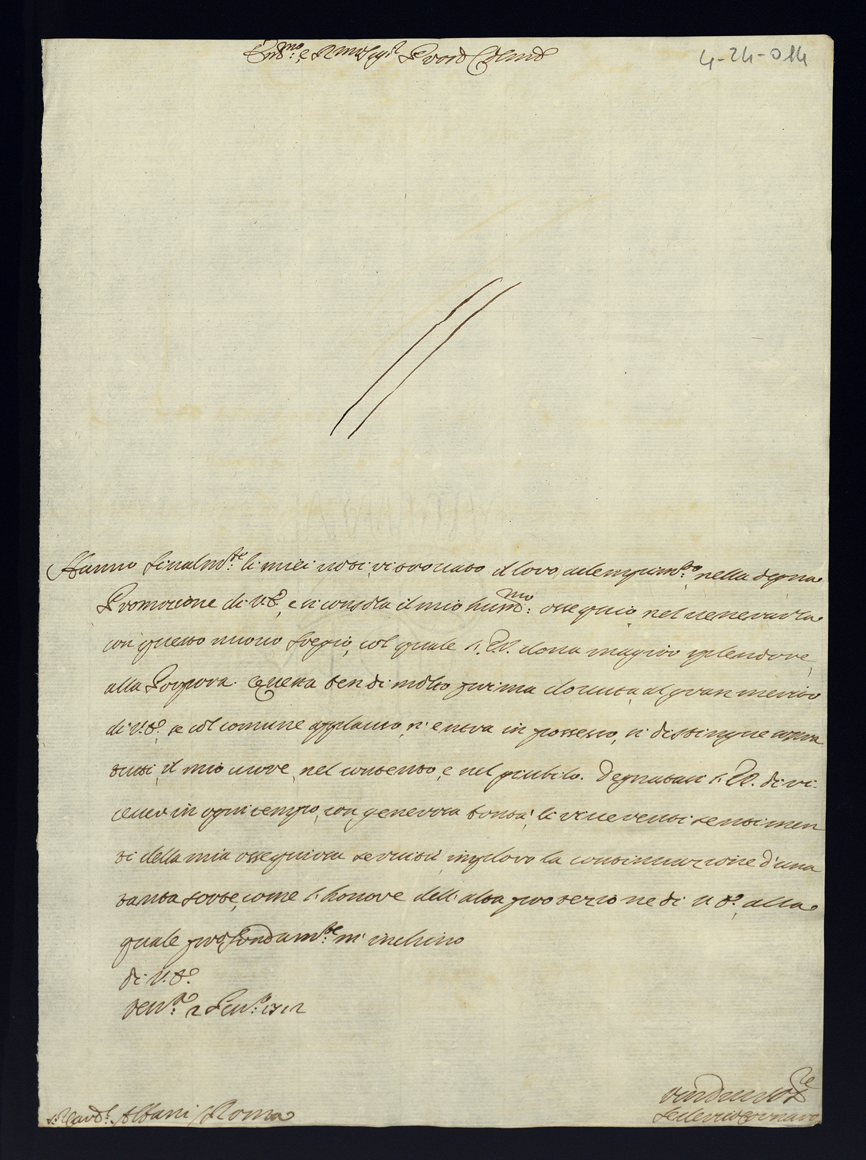 Em.mo e R.mo Sig.r P.ron Col.mo
4-24-014
Hanno finalm.te li miei voti ritrovato il loro adempim.to nella degna
Promozione di V.E., e si consola il mio hum.mo ossequio nel venerarla
con questo nuovo fregio, col quale l'E.V. dona maggior splendore
alla Porpora. Questa ben di molto prima dovuta al gran merito
di V.E., se col comune applauso n'entra in possesso, si distingue sopra
tutti il mio cuore nel contento, e nel giubilo. Degnatasi l'E.V. di ri-
cever in ogni tempo con generosa bontà li riverenti sentimen
ti della mia ossequiosa servitù, imploro la continuazione d'una
tanta sorte, come l'honore dell'alta protezione di V.E., alla
quale profondam.te m'inchino
di V.E.
Ven.a 2 Gen.o 1712
Card.l Albani / Roma